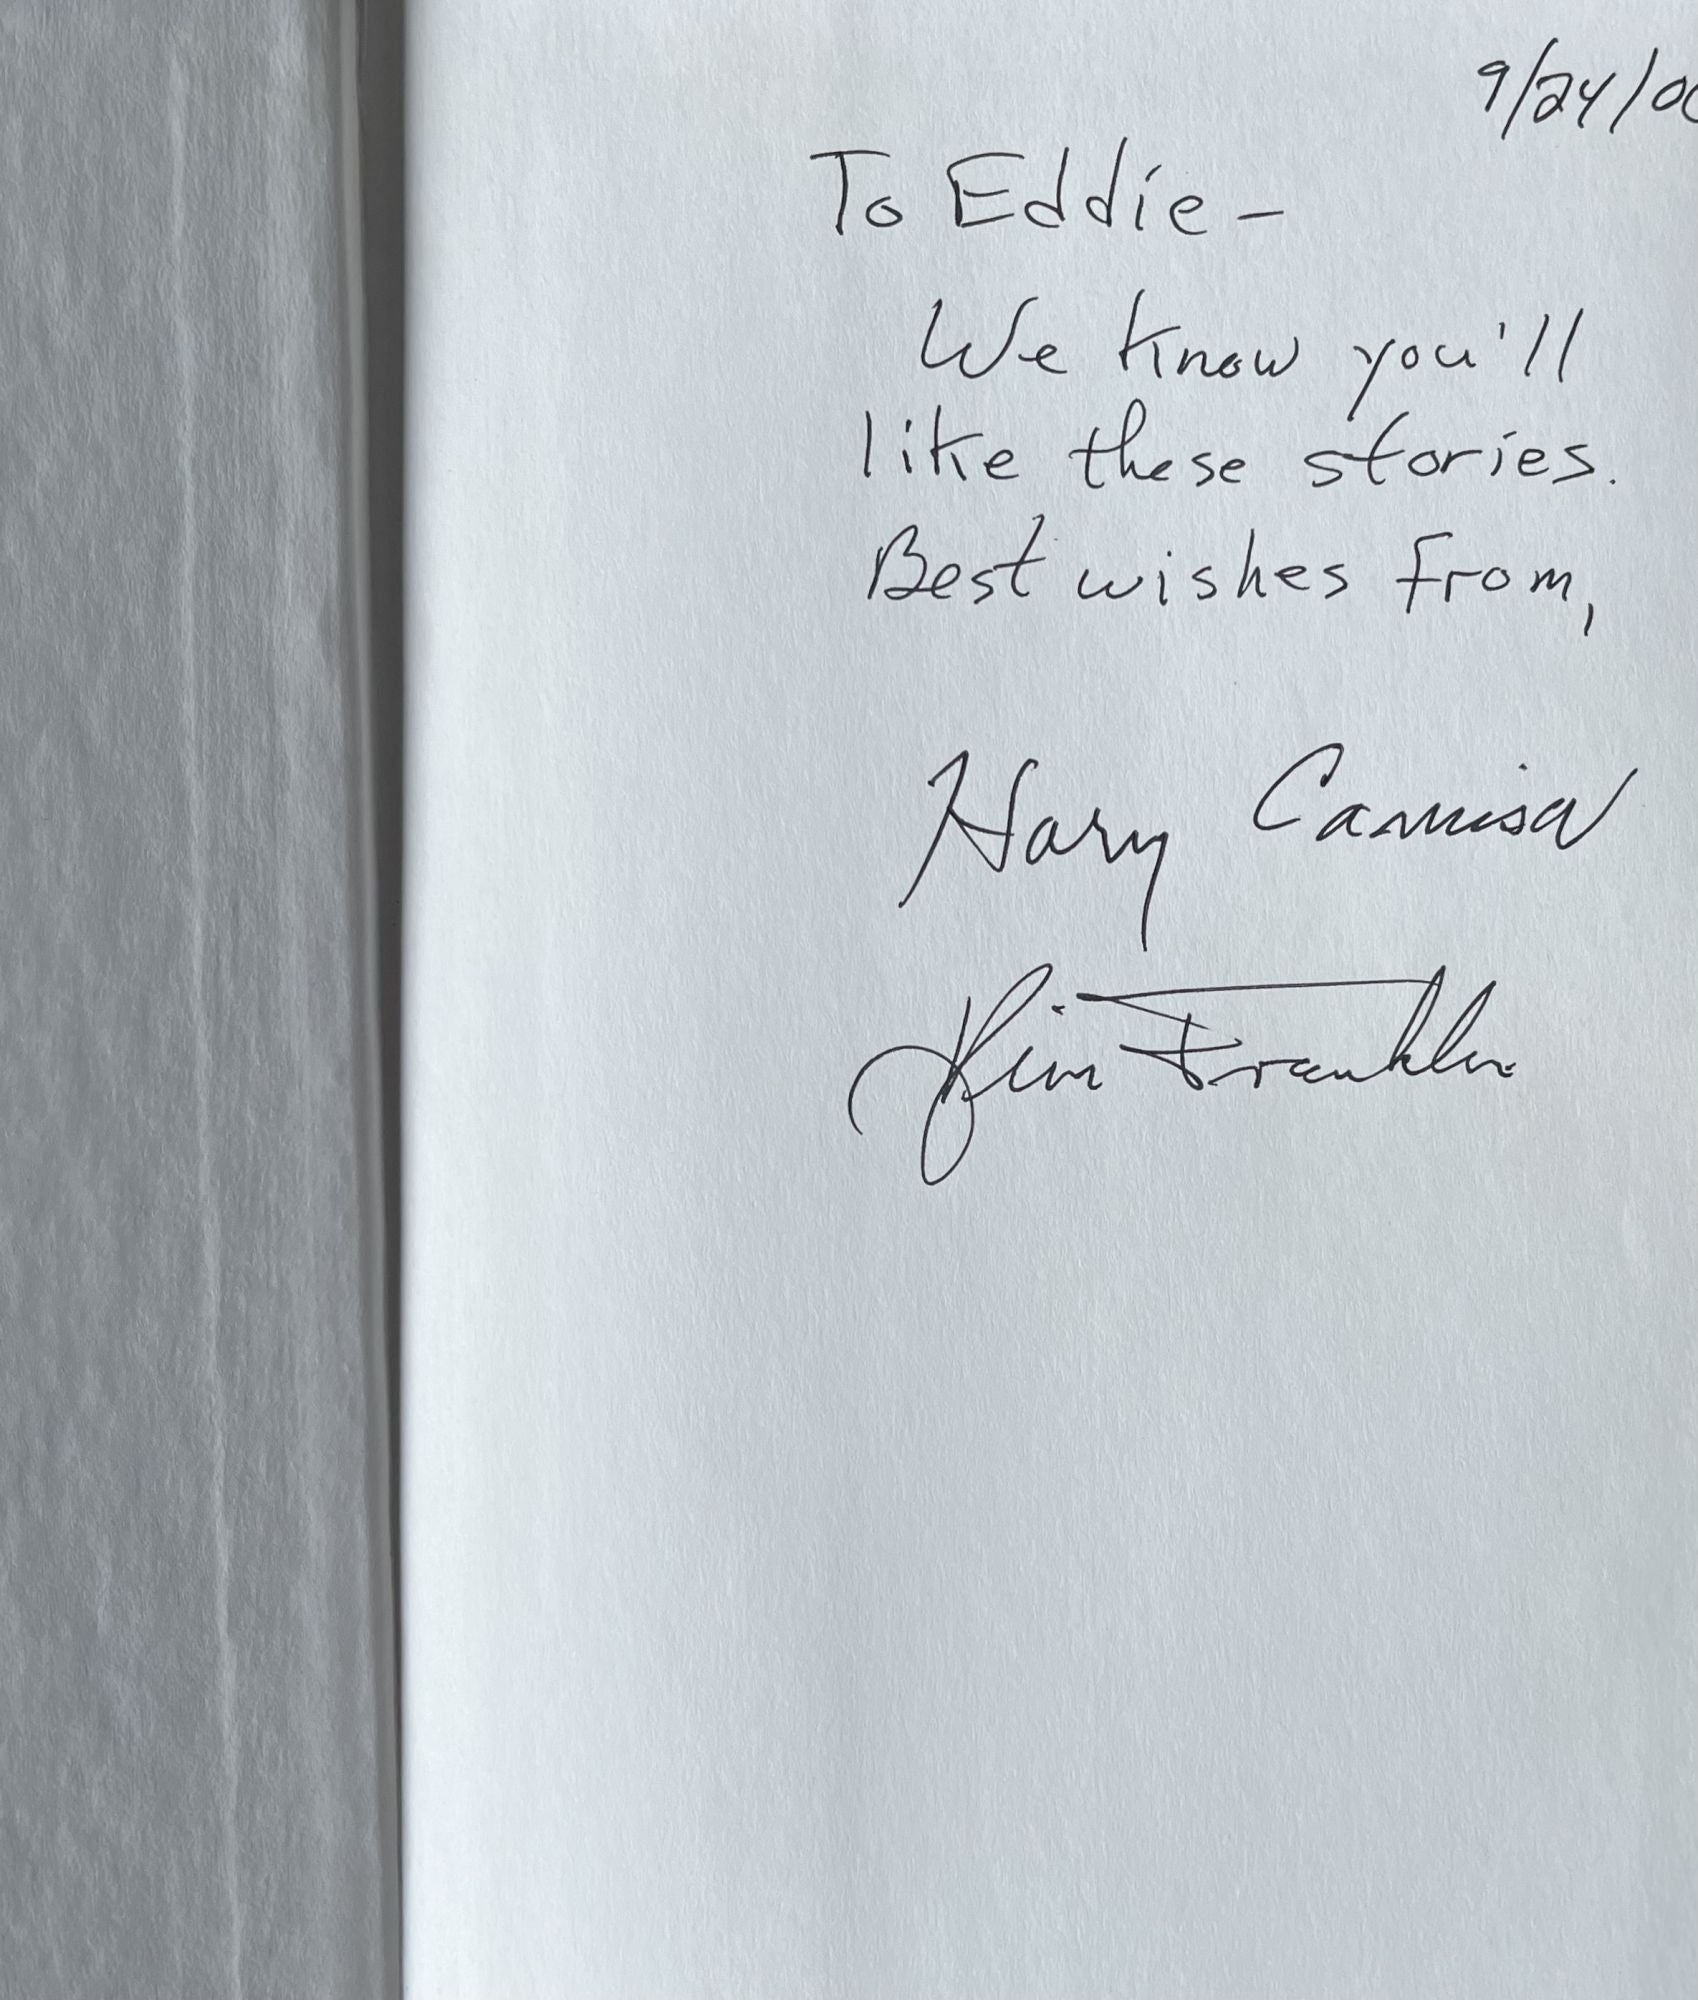 9/24/00
To Eddie -
We know you'll
like these stories.
Best wishes from,
Harry Camisa
Jim Franklin